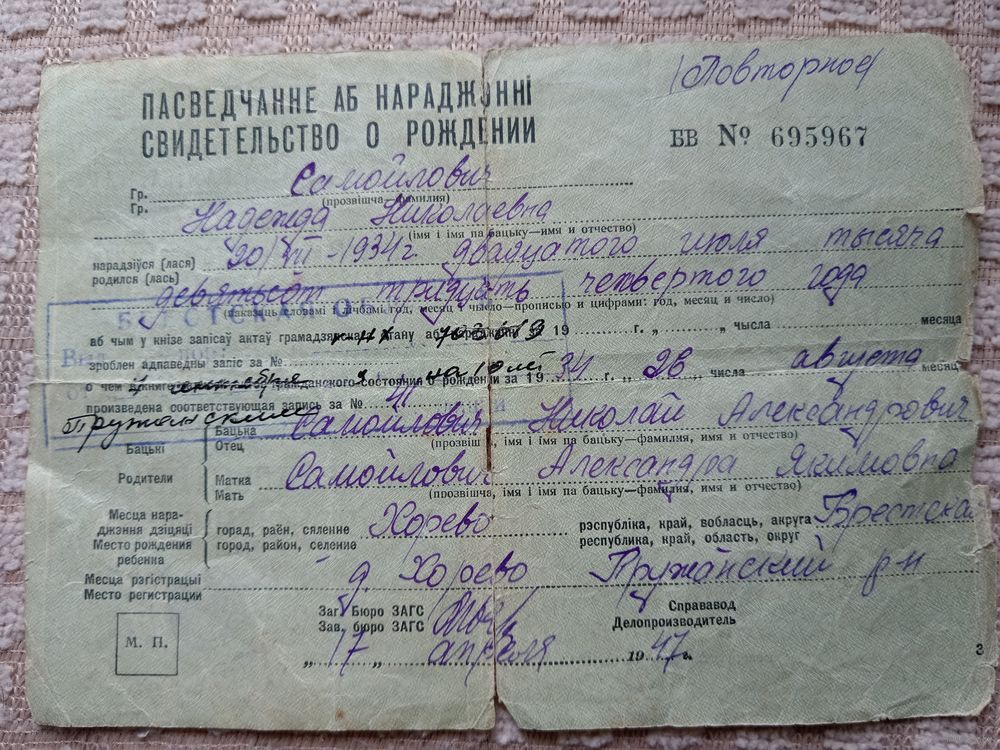 (Повторное)
ПАСВЕДЧАННЕ АБ НАРАДЖЭННІ
СВИДЕТЕЛЬСТВО О РОЖДЕНИИ
БВ № 695967
Гр. Самойлович
Гр. (прозвішча—фамилия)
Надежда Николаевна
(імя і імя па бацьку—имя и отчество)
нарадзіўся (лася) 20/VII - 1934 г. двадцатого июля тысяча
родился (лась)
девятьсот тридцать четвертого года
(паказаць словамі і лічбамі год, месяц і чысло—прописью и цифрами: год, месяц и число)
аб чым у кнізе запісаў актаў грамадзянскага стану аб нараджэнні за 19 г. „ „ чысла месяца
зроблен адпаведны запіс за №
о чем в книге записей актов гражданского состояния о рождении за 19 34 г. „ 28 августа месяца
произведена соответствующая запись за № 41
Пружанским
Бацькі Бацька Самойлович Николай Александрович
Отец (прозвішча, імя і імя па бацьку—фамилия, имя и отчество)
Родители Матка Самойлович Александра Якимовна
Мать (прозвішча, імя і імя па бацьку—фамилия, имя и отчество)
Месца нараджэння дзіцяці горад, раён, сяленне Хорево рэспубліка, край, вобласць, акруга Брестская
Место рождения ребенка город, район, селение республика, край, область, округ
Месца рэгістрацыі д. Хорево Пружанский р-н
Место регистрации
Заг. Бюро ЗАГС Справавод
Зав. бюро ЗАГС Делопроизводитель
М. П.
„ 17 „ апреля 1947 г.
3